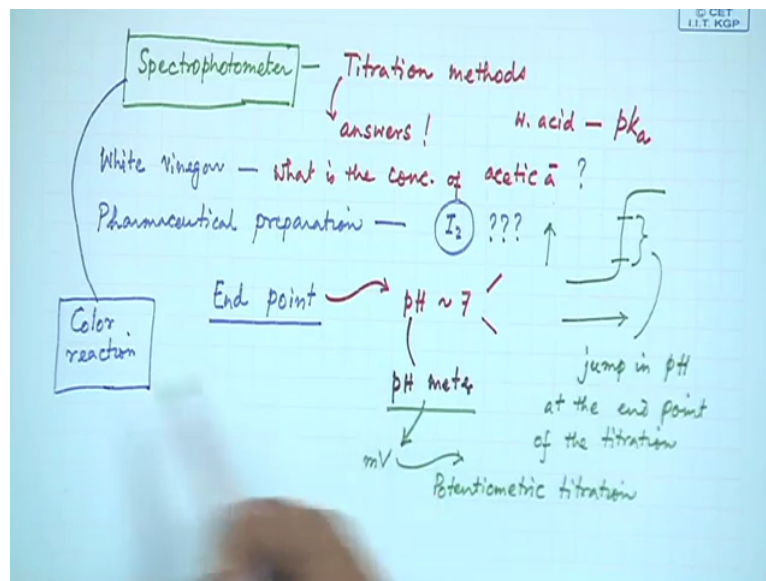 © CET
I.I.T. KGP
Spectrophotometer — Titration methods
answers !
W. acid — pka
White vinegar — What is the conc. of acetic ā ?
Pharmaceutical preparation — I2 ???
End point pH ~ 7
Color
reaction
pH meter
jump in pH
at the end point
of the titration
mV
Potentiometric titration